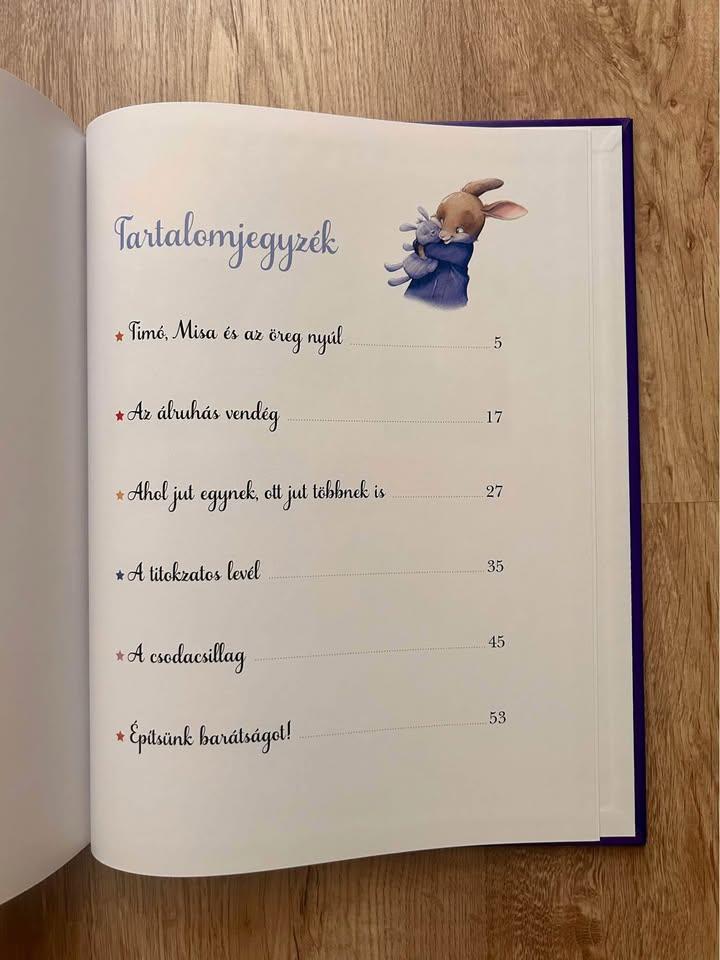 Tartalomjegyzék
Timó, Misa és az öreg nyúl 5
Az álruhás vendég 17
Ahol jut egynek, ott jut többnek is 27
A titokzatos levél 35
A csodacsillag 45
Építsünk barátságot! 53